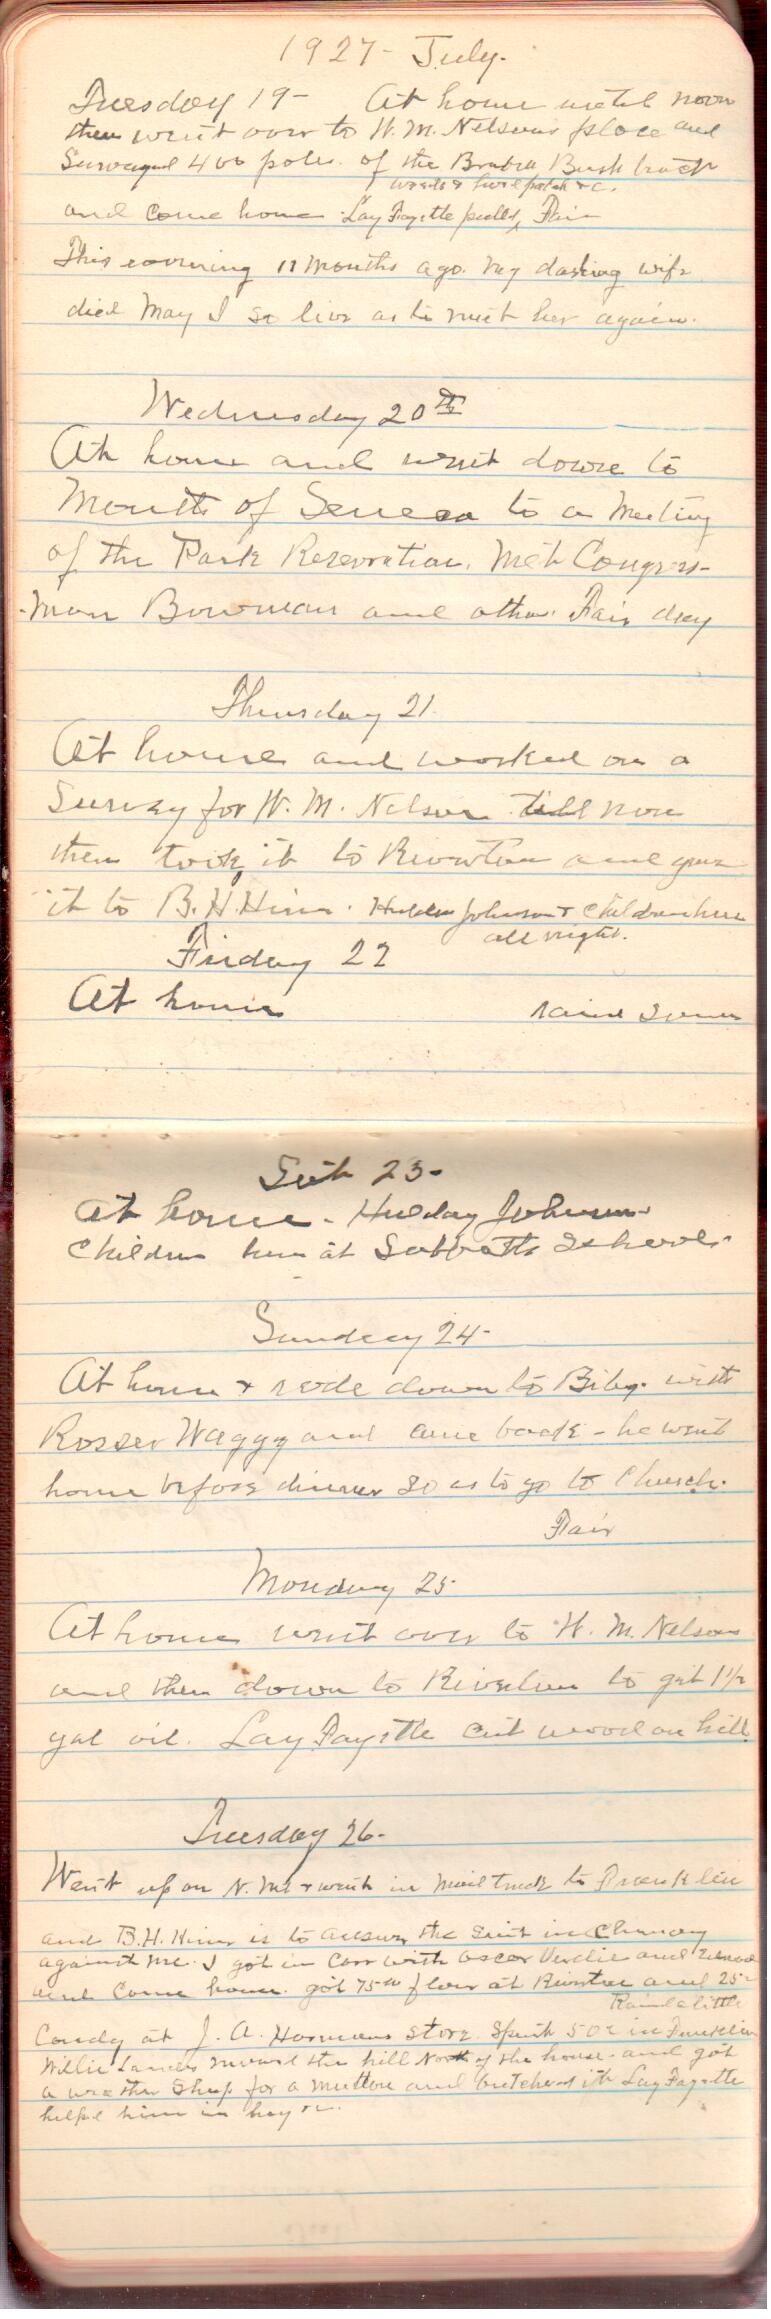 1927 - July.
Tuesday 19 - At home until noon
then went over to W. M. Nelsons place and
Surveyed 400 poles of the Bush tract
weeds & patch &c.
and come home Lay Fayette pulls Fair
This evening 11 months ago my darling wife
died May I so live as to meet her again.
Wednesday 20th
At home and went down to
Mouth of Seneca to a Meeting
of the Park Reservation. Met Congress-
-man Bowman and other. Fair day
Thursday 21.
At home and worked on a
Survey for W. M. Nelson till noon
then took it to Riverton and gave
it to B. H. Hiner. Hulda Johnson & Children here
all night.
Friday 22
At home raind some
Sat 23 -
At home - Hulday Johnson
Children here at Sabbath School
Sunday 24 -
At home & rode down to Biby with
Rosser Waggy and came back - he went
home before dinner so as to go to Church.
Fair
Monday 25
At home went over to W. M. Nelsons
and then down to Riverton to get 1 1/2
gal oil. Lay Fayette cut wood on hill
Tuesday 26 -
Went up on N. Mt & went in mail truck to Franklin
and B. H. Hiner is to answer the Suit in Chancy
against me. I got in Carr with Oscar and
and Come home. got 75 flour at Riverton and 25
Raind a little
Candy at J. A. Harmans Store. Spent 50¢ in Franklin
Willie mowed the hill North of the house. and got
a weather Sheep for a mutton and butchered it Lay Fayette
helpd him in hay &c.